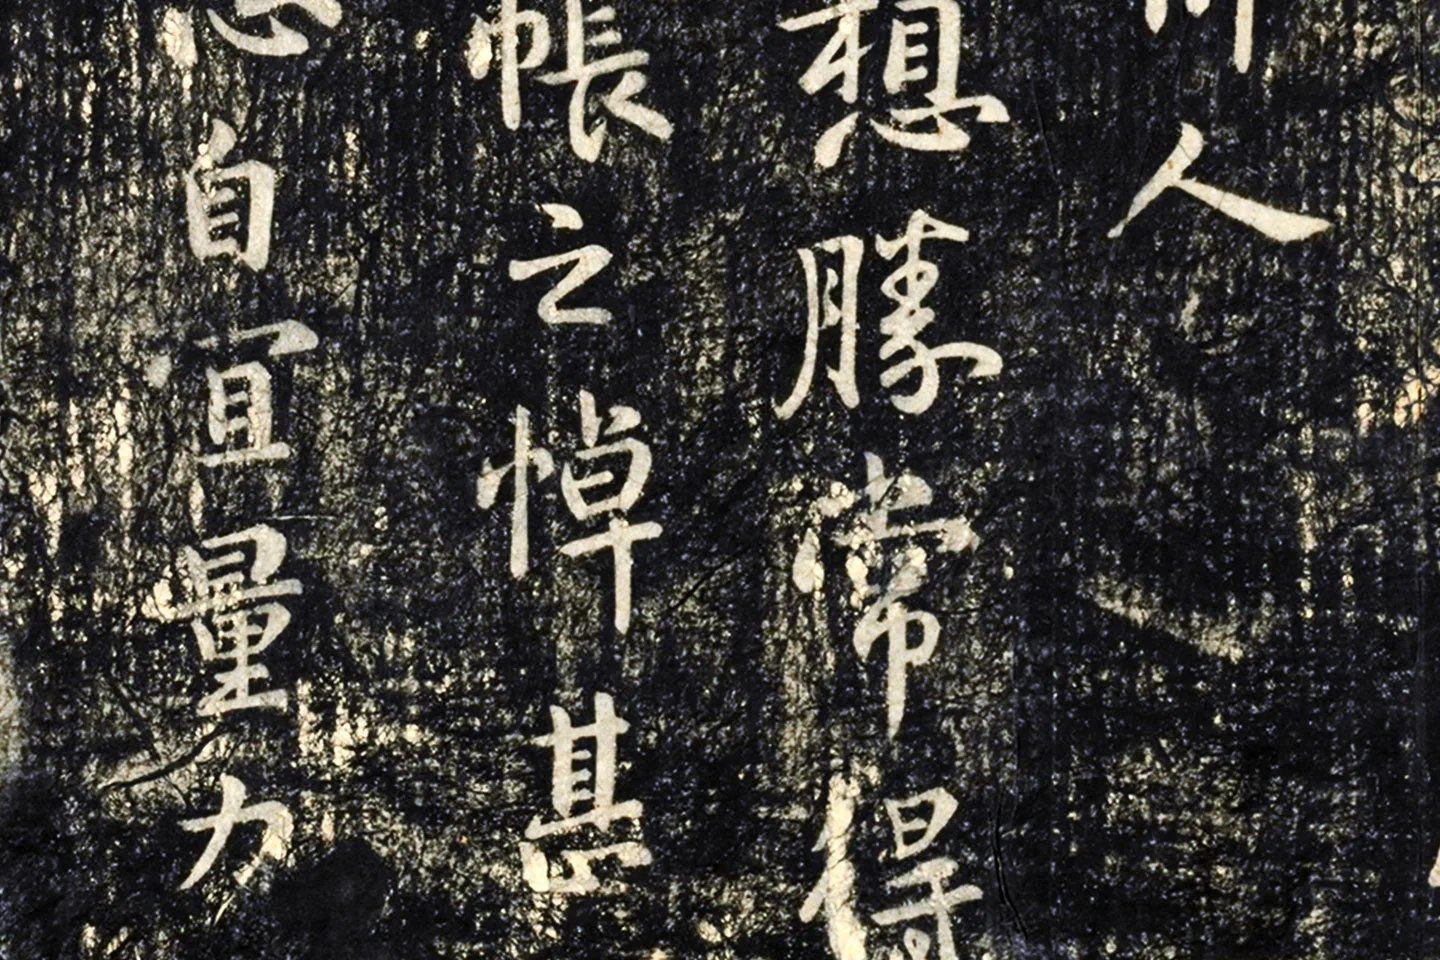 人
想勝常得
帳之悼甚
自宜量力